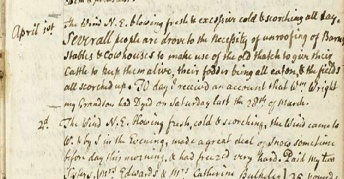 April 1st The Wind N.E. blowing fresh & excessive cold & scorching all day.
Severall people are drove to the Necessity of unroofing of Barns
Stables & Cowhouses to make use of the old thatch to give their
Cattle to keep them alive, their fodder being all eaten, & the fields
all scorched up. To day I receiv'd an account that Wm Wright
my Grandson Dyed on Saturday last the 28th of March.
2d. The Wind N.E. blowing fresh, cold & scorching, the Wind came to
in the Evening, made a great deal of Snow sometime
before day this morning, & had freezed very hard. Paid my two
Sisters, Mrs Edwards & Mrs Catherine Bulkeley 25 pounds